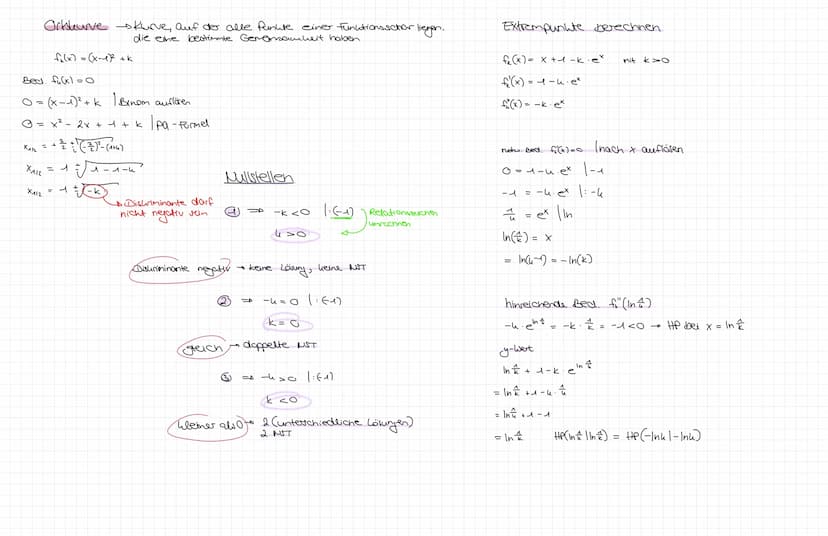 Ortskurve → Kurve, auf der alle Punkte einer Funktionsschar liegen,
die eine bestimmte Gemeinsamkeit haben
fₖ(x) = (x-1)² + k
Bed. fₖ(x) = 0
0 = (x-1)² + k | Binom auflösen
0 = x² - 2x + 1 + k | pq-Formel
x₁/₂ = + 2/2 ± √((-2/2)² - (1+k))
x₁/₂ = 1 ± √(1-1-k)
x₁/₂ = 1 ± √(-k)
→ Diskriminante darf
nicht negativ sein
Nullstellen
① ⇒ -k < 0 | :(-1) Relationszeichen
umdrehen
k > 0
Diskriminante negativ → keine Lösung, keine NST
② ⇒ -k = 0 | :(-1)
k = 0
gleich → doppelte NST
③ ⇒ -k > 0 | :(-1)
k < 0
kleiner als 0 → 2 (unterschiedliche Lösungen)
2 NST
Extrempunkte berechnen
fₖ(x) = x + 1 - k · eˣ mit k > 0
fₖ'(x) = 1 - k · eˣ
fₖ''(x) = -k · eˣ
notw. Bed. fₖ'(x) = 0 | nach x auflösen
0 = 1 - k · eˣ | -1
-1 = -k · eˣ | : -k
1/k = eˣ | ln
ln(1/k) = x
= ln(k⁻¹) = -ln(k)
hinreichende Bed. fₖ''(ln 1/k)
-k · e^(ln 1/k) = -k · 1/k = -1 < 0 → HP bei x = ln 1/k
y-Wert
ln 1/k + 1 - k · e^(ln 1/k)
= ln 1/k + 1 - k · 1/k
= ln 1/k + 1 - 1
= ln 1/k HP(ln 1/k | ln 1/k) = HP(-ln k | -ln k)